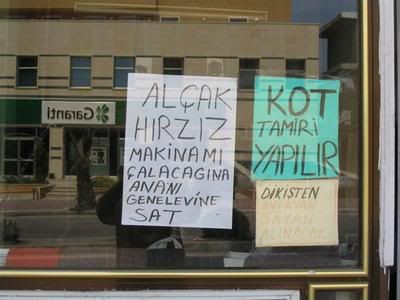 Garanti
ALÇAK
HIRZIZ
MAKİNAMI
ÇALACAĞINA
ANANI
GENELEVİNE
SAT
KOT
TAMİRİ
YAPILIR
DİKİŞTEN
ANLAYAN
BAYAN
ALINACAK